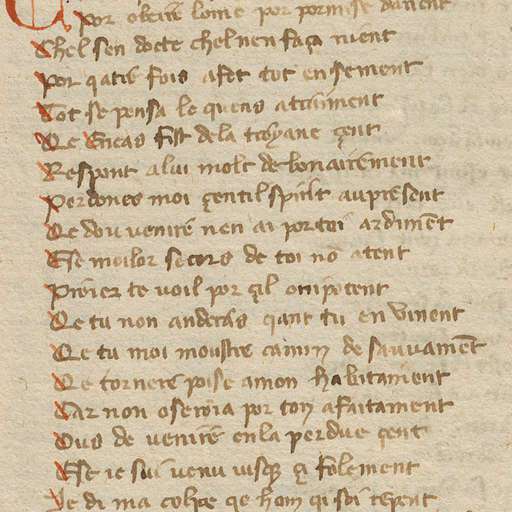 por obeire lome por pormise donent
Chel sen docte chel nen faça nient
Por qatre fois afet tot ensement
Tot se pensa le quens atraiment
Qe Eneas fist dela troyane çent
Respont alui molt debonairement
Perdones moi çentil spirt aupresent
Qe dou venire nen ai por toi ardimẽt
Ese meilor secors de toi nõ atent
Preier te voil por çil omnipotent
Qe tu non anderas qant tu en vinent
Qe tu moi moustre camin de sauuamẽt
Qe tornere poise amon habitament
Car non oseroia por ton afaitament
Ous de venire enla perdue çent
Ese ie sui venu iusqe ça folement
Je di ma colpe qe hom qi soi repent